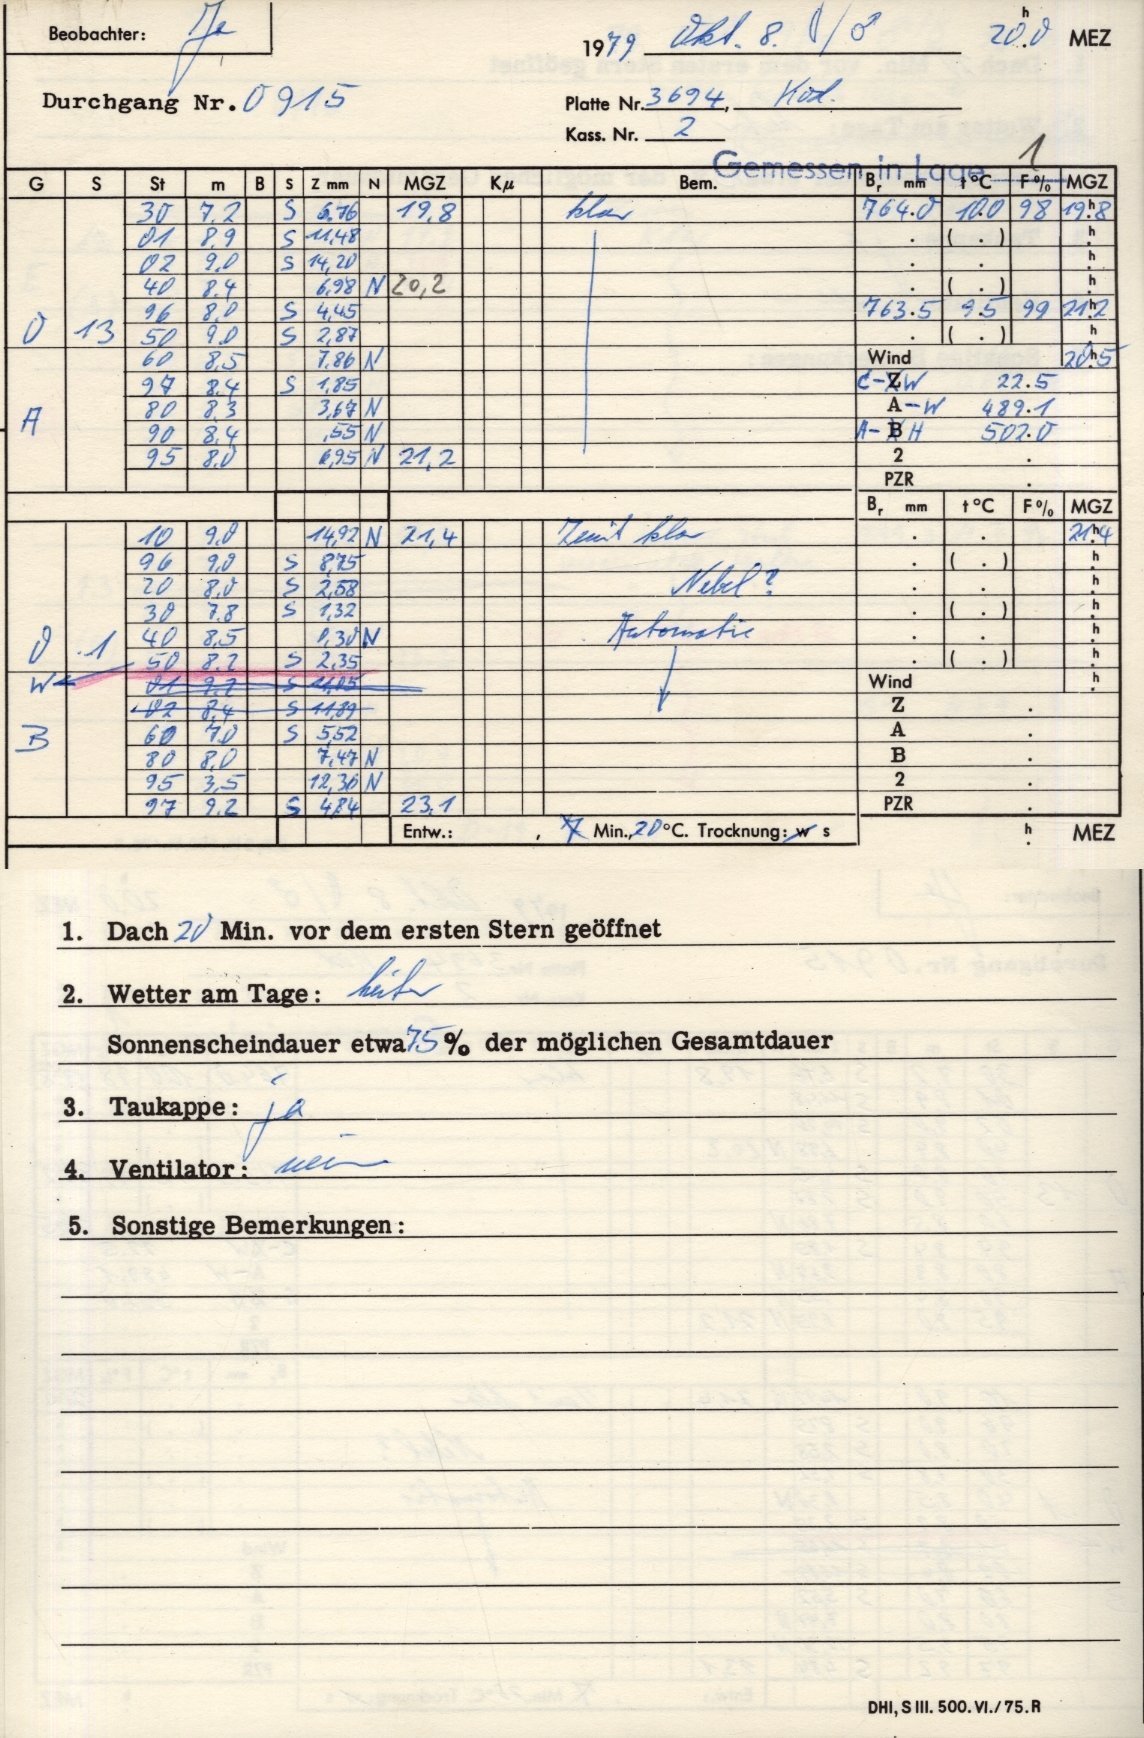 Beobachter: Je
1979 Okt. 8. 20.0 h MEZ
Durchgang Nr. 0915
Platte Nr. 3694, Kod.
Kass. Nr. 2
Gemessen in Lage 1
G S St m B S Z mm N MGZ Kμ Bem. Br mm t °C F% MGZ
30 7.2 S 6,76 19,8 klar 764.0 10.0 98 19.8 h
01 8.9 S 11,48 . ( . ) h
02 9.0 S 14,20 . . h
40 8.4 6,98 N 20,2 . ( . ) h
96 8.0 S 4,45 763.5 9.5 99 21.2 h
0 13 50 9.0 S 2,87 . ( . ) h
60 8,5 7,86 N Wind 20.5 h
97 8.4 S 1,85 C-W 22.5
A 80 8,3 3,67 N A-W 489.1
90 8.4 ,55 N A-H 502.0
95 8.0 6,95 N 21,2 2 .
PZR .
Br mm t °C F% MGZ
10 9.0 14,92 N 21,4 Zenit klar . . 21.4 h
96 9.0 S 8,75 . ( . ) h
20 8.0 S 2,58 Nebel? . . h
30 7.8 S 1,32 . ( . ) h
0 1 40 8,5 0,30 N Automatic . . h
50 8.2 S 2,35 . ( . ) h
W 01 9.2 S 11,05 Wind h
02 8,4 S 11,89 Z .
B 60 7.0 S 5,52 A .
80 8,0 7,47 N B .
95 3,5 12,36 N 2 .
97 9.2 S 4,84 23,1 PZR .
Entw.: , 7 Min., 20 °C. Trocknung: w s h MEZ
1. Dach 20 Min. vor dem ersten Stern geöffnet
2. Wetter am Tage: heiter
Sonnenscheindauer etwa 75 % der möglichen Gesamtdauer
3. Taukappe: ja
4. Ventilator: nein
5. Sonstige Bemerkungen:
DHI, S III. 500. VI./75. R